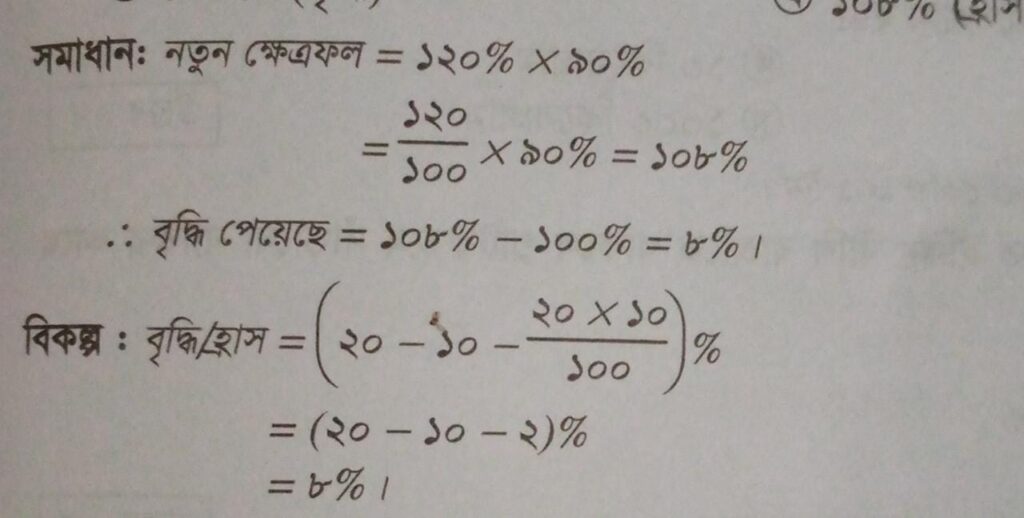 ১০৮% (হ্রাস
সমাধান: নতুন ক্ষেত্রফল = ১২০% × ৯০%
= ১২০/১০০ × ৯০% = ১০৮%
∴ বৃদ্ধি পেয়েছে = ১০৮% – ১০০% = ৮%।
বিকল্প : বৃদ্ধি/হ্রাস = (২০ – ১০ – ২০ × ১০/১০০)%
= (২০ – ১০ – ২)%
= ৮%।